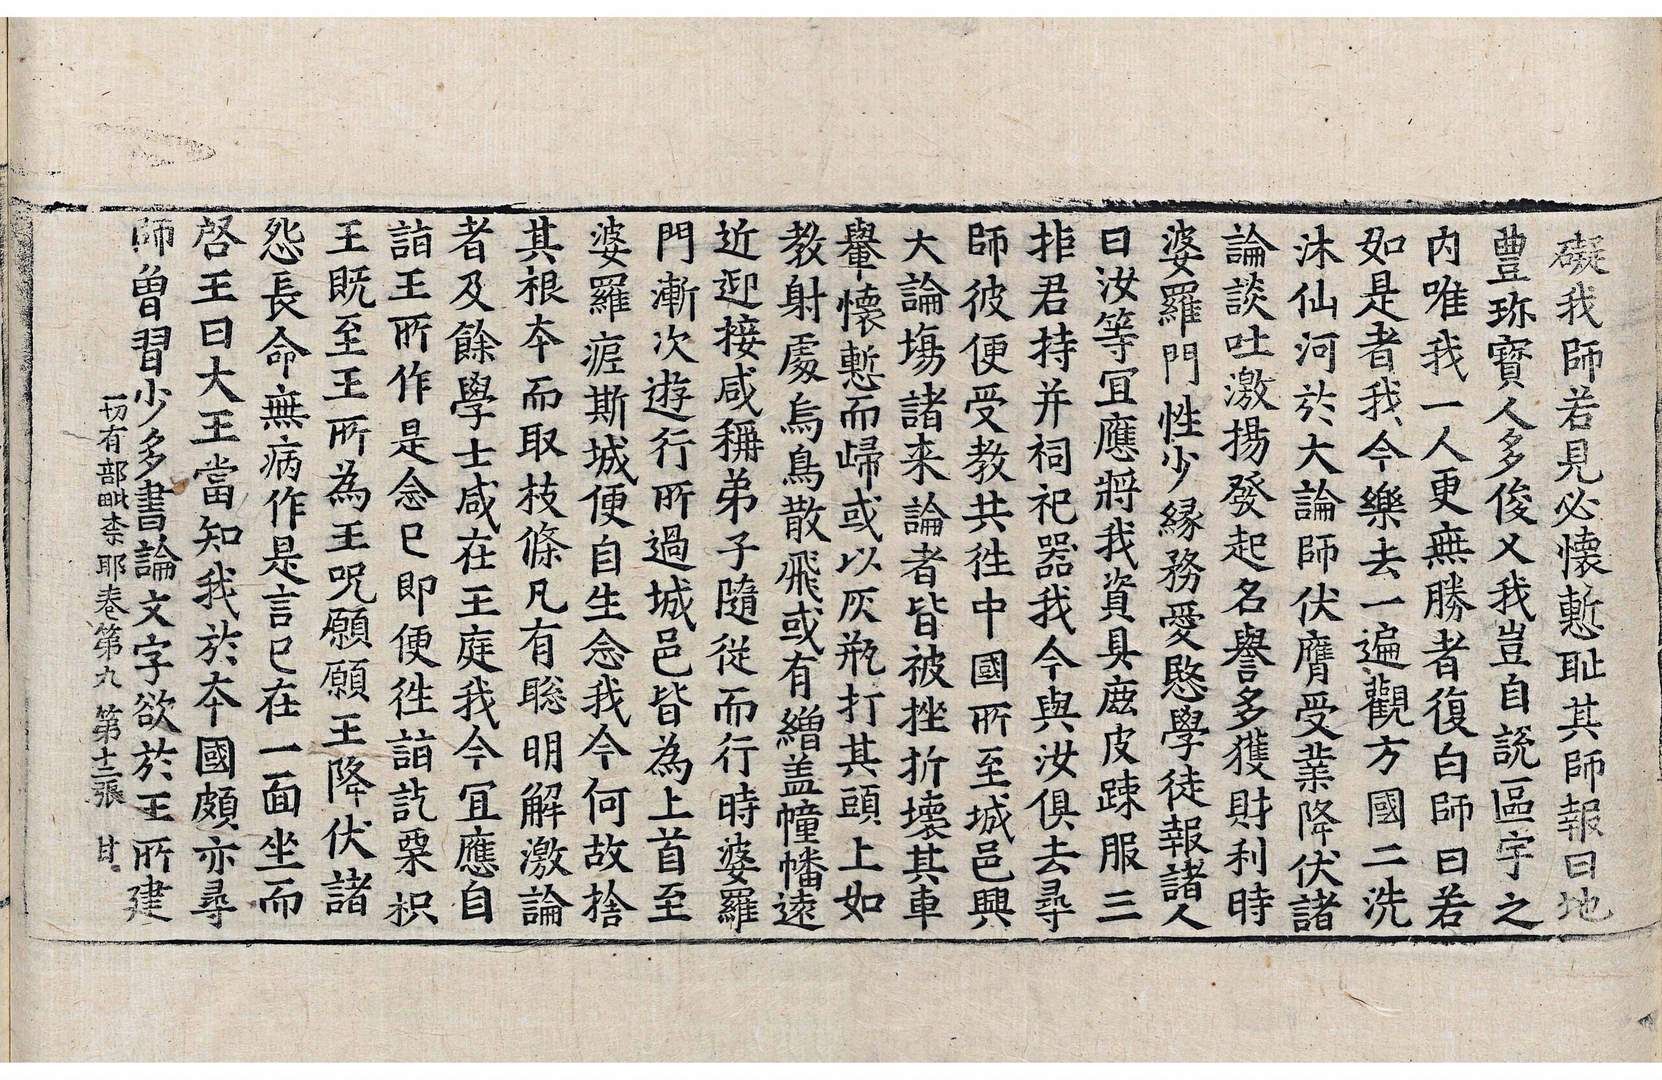 礙我師若見必懷慙耻其師報曰地
豊珎寶人多俊乂我豈自說區宇之
内唯我一人更無勝者復白師曰若
如是者我今樂去一遍觀方國二洗
沐仙河於大論師伏膺受業降伏諸
論談吐激揚發起名譽多獲財利時
婆羅門性少緣務愛愍學徒報諸人
曰汝等宜應將我資具鹿皮踈服三
拒君持并祠祀器我今與汝俱去尋
師彼便受教共往中國所至城邑興
大論場諸来論者皆被挫折壞其車
轝懷慙而歸或以灰瓶打其頭上如
教射處烏鳥散飛或有繒盖幢幡遠
近迎接咸稱弟子隨從而行時婆羅
門漸次遊行所過城邑皆為上首至
婆羅痆斯城便自生念我今何故捨
其根本而取枝條凡有聡明解激論
者及餘學士咸在王庭我今宜應自
詣王所作是念已即便往詣訖栗枳
王既至王所為王呪願願王降伏諸
怨長命無病作是言已在一面坐而
啓王曰大王當知我於本國頗亦尋
師曾習少多書論文字欲於王所建
一切有部毗柰耶卷第九 第十二張 甘